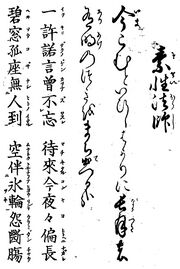 素性法師
今こむといひしはかりに長月の
有明の月をまち出つる哉
一許諾言曾不忘 待來今夜々偏長
碧窓孤座無人到 空伴氷輪怨斷腸